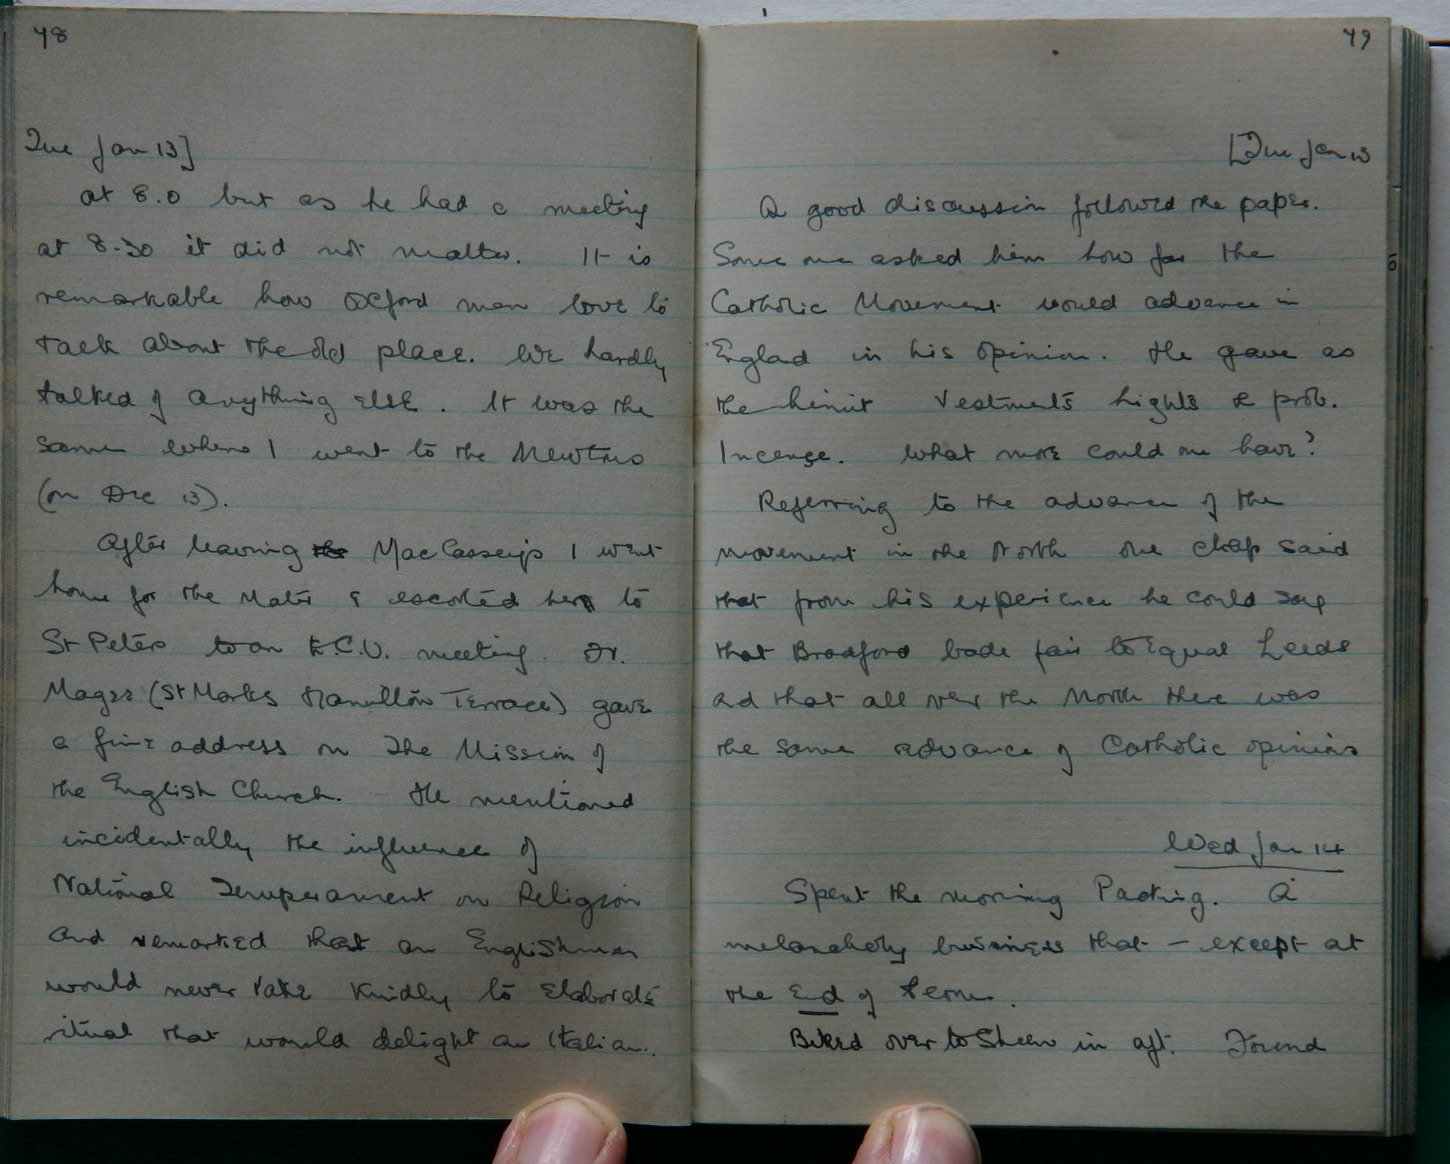 48
Tue Jan 13]
at 8.0 but as he had a meeting
at 8-30 it did not matter. It is
remarkable how Oxford men love to
talk about the old place. We hardly
talked of anything else. It was the
same when I went to the Newtons
(on Dec 13).
After leaving the MacCasseys I went
home for the Mater & escorted her to
St Peters to an E.C.U. meeting. Dr.
Magee (St Marks Hamilton Terrace) gave
a fine address on The Mission of
the English Church. He mentioned
incidentally the influence of
National Temperament on Religion
and remarked that an Englishman
would never take kindly to elaborate
ritual that would delight an Italian.
49
[Tue Jan 13
A good discussion followed the paper.
Some one asked him how far the
Catholic Movement would advance in
Englad in his opinion. He gave as
the limit Vestments lights & prob.
Incense. What more could one have?
Referring to the advance of the
movement in the North one chap said
that from his experience he could say
that Bradford bade fair to equal Leeds
ad that all over the North there was
the same advance of Catholic opinions
Wed Jan 14
Spent the morning Packing. A
melancholy business that - except at
the End of term.
Biked over to Sheen in aft. Found